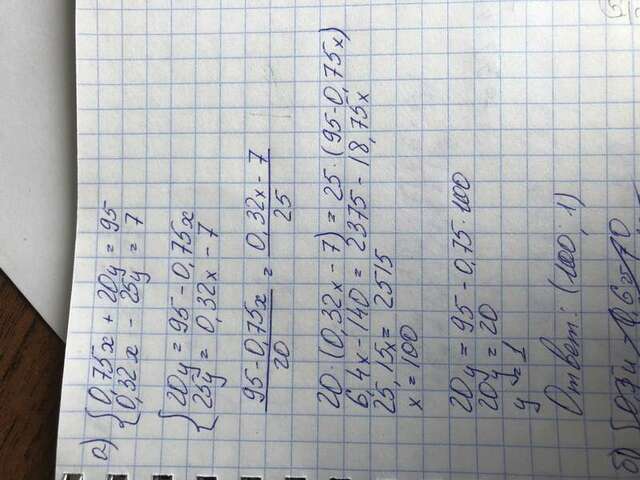 а) {0,75x + 20y = 95
{0,32x - 25y = 7
{20y = 95 - 0,75x
{25y = 0,32x - 7
95 - 0,75x / 20 = 0,32x - 7 / 25
20 · (0,32x - 7) = 25 · (95 - 0,75x)
6,4x - 140 = 2375 - 18,75x
25,15x = 2515
x = 100
20y = 95 - 0,75 · 100
20y = 20
y = 1
Ответ: (100; 1)
б)